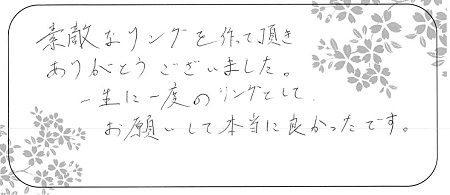 素敵なリングを作って頂き
ありがとうございました。
一生に一度のリングとして
お願いして本当に良かったです。